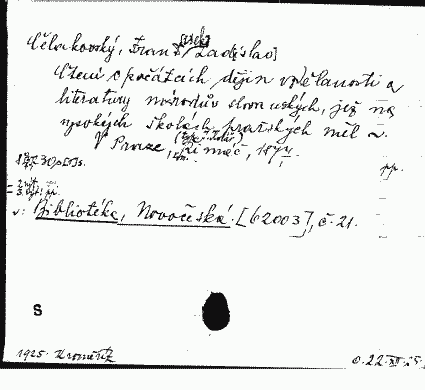 Čelakovský, Frant. Ladislav]
Čtení o počátcích dějin vzdělanosti a
literatury národův slovanských, jež na
vysokých školách pražských měl a.
V Praze, Řivnáč, 1877.
8° 30
pp.
v: Bibliotéka, Novočeská. [62003], č. 21.
S
1925. Kroměříž
0.22.XII.25.